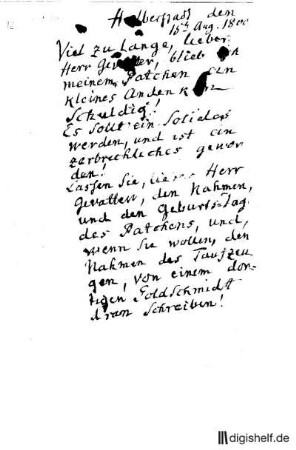 Halberstadt den
15ten Aug. 1800
Viel zu Lange, lieber
Herr Gevatter, blieb ich
meinem Patchen ein
kleines Andenken
Schuldig!
Es sollt' ein Solides
werden, und ist ein
zerbrechliches gewor
den!
Lassen Sie, lieber Herr
Gevatter, den Nahmen,
und den Geburts-Tag
des Patchens, und,
wenn Sie wollen, den
Nahmen des Taufzeu
gen, von einem dor-
tigen Goldschmidt
dran schreiben!
digishelf.de